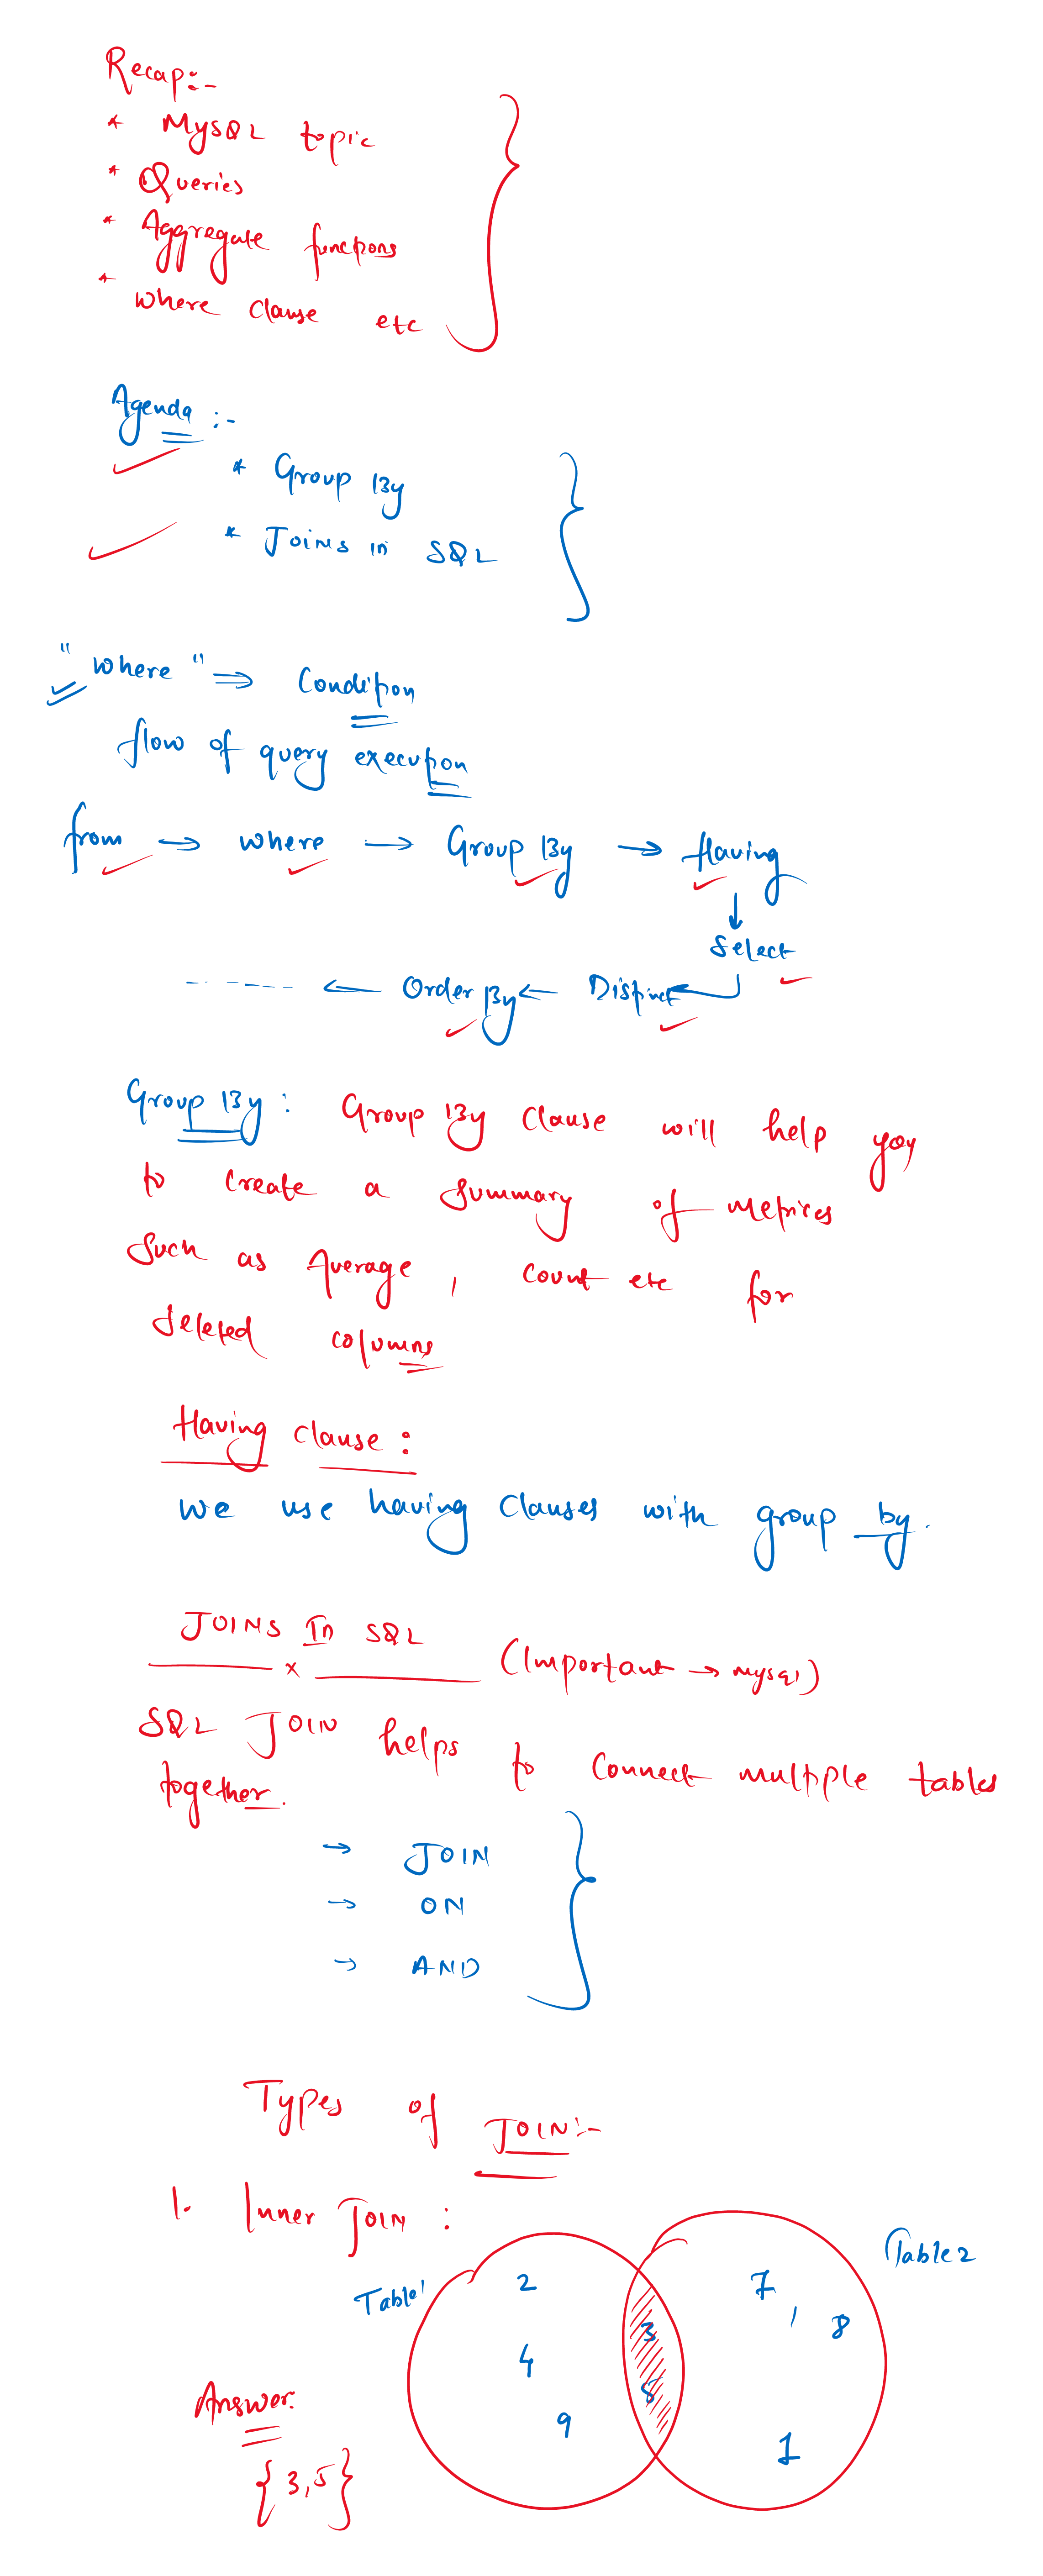 Recap:-
* MySQL topic
* Queries
* Aggregate functions
* Where Clause etc
Agenda :-
* Group By
* Joins in SQL
"Where" ⇒ Condition
flow of query execution
from → where → Group By → Having
↓
Select
------ ← Order By ← Distinct
Group By : Group By Clause will help you
to create a summary of metrics
Such as Average, count etc for
Seleted columns
Having Clause :
We use having Clauses with group by.
JOINS In SQL
x (Important → mysql)
SQL JOIN helps to Connect multiple tables
together.
→ JOIN
→ ON
→ AND
Types of JOIN:-
1. Inner JOIN :
Table 2
Table 1
2 7
3 , 8
4
5
9 1
Answer:
{3,5}